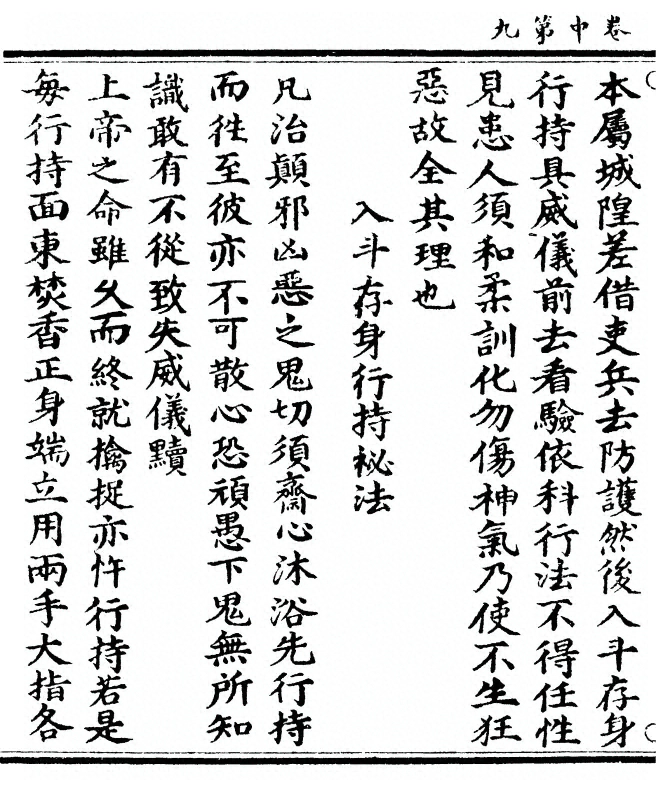 卷中第九
本屬城隍差借吏兵去防護然後入斗存身
行持具威儀前去看驗依科行法不得任性
見患人須和柔訓化勿傷神氣乃使不生狂
惡故全其理也
入斗存身行持祕法
凡治顛邪凶惡之鬼切須齋心沐浴先行持
而徃至彼亦不可散心恐頑愚下鬼無所知
識敢有不從致失威儀黷
上帝之命雖乆而終就擒捉亦忤行持若是
每行持面東焚香正身端立用兩手大指各